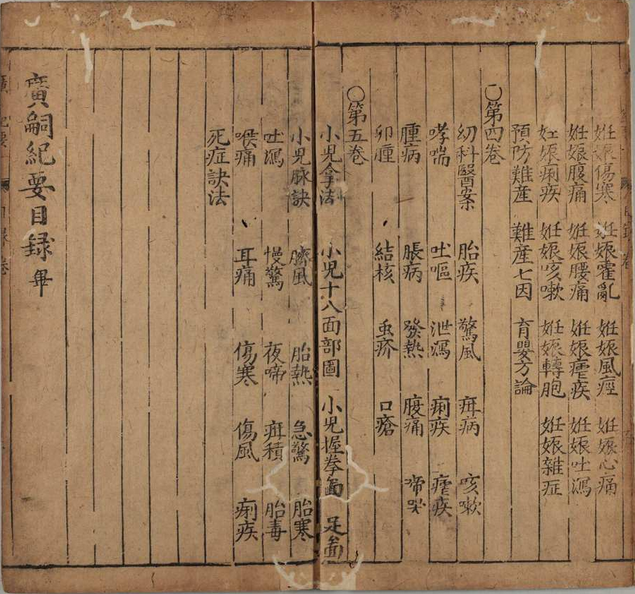 姙娠傷寒 姙娠霍亂 姙娠風痙 姙娠心痛
姙娠腹痛 姙娠腰痛 姙娠瘧疾 姙娠吐瀉
姙娠痢疾 姙娠咳嗽 姙娠轉胞 姙娠雜症
預防難産 難産七因 育嬰方論
○第四卷
幼科醫案 胎疾 驚風 疳病 咳嗽
哮喘 吐嘔 泄瀉 痢疾 瘧疾
腫病 脹病 發熱 腹痛 啼哭
卵腫 結核 虫疥 口瘡
○第五卷
小児拿法 小児十八面部圖 小児握拳面 足面
小児脉訣 臍風 胎熱 急驚 胎寒
吐瀉 慢驚 夜啼 疳積 胎毒
喉痛 耳痛 傷寒 傷風 痢疾
死症訣法
廣嗣紀要目録畢